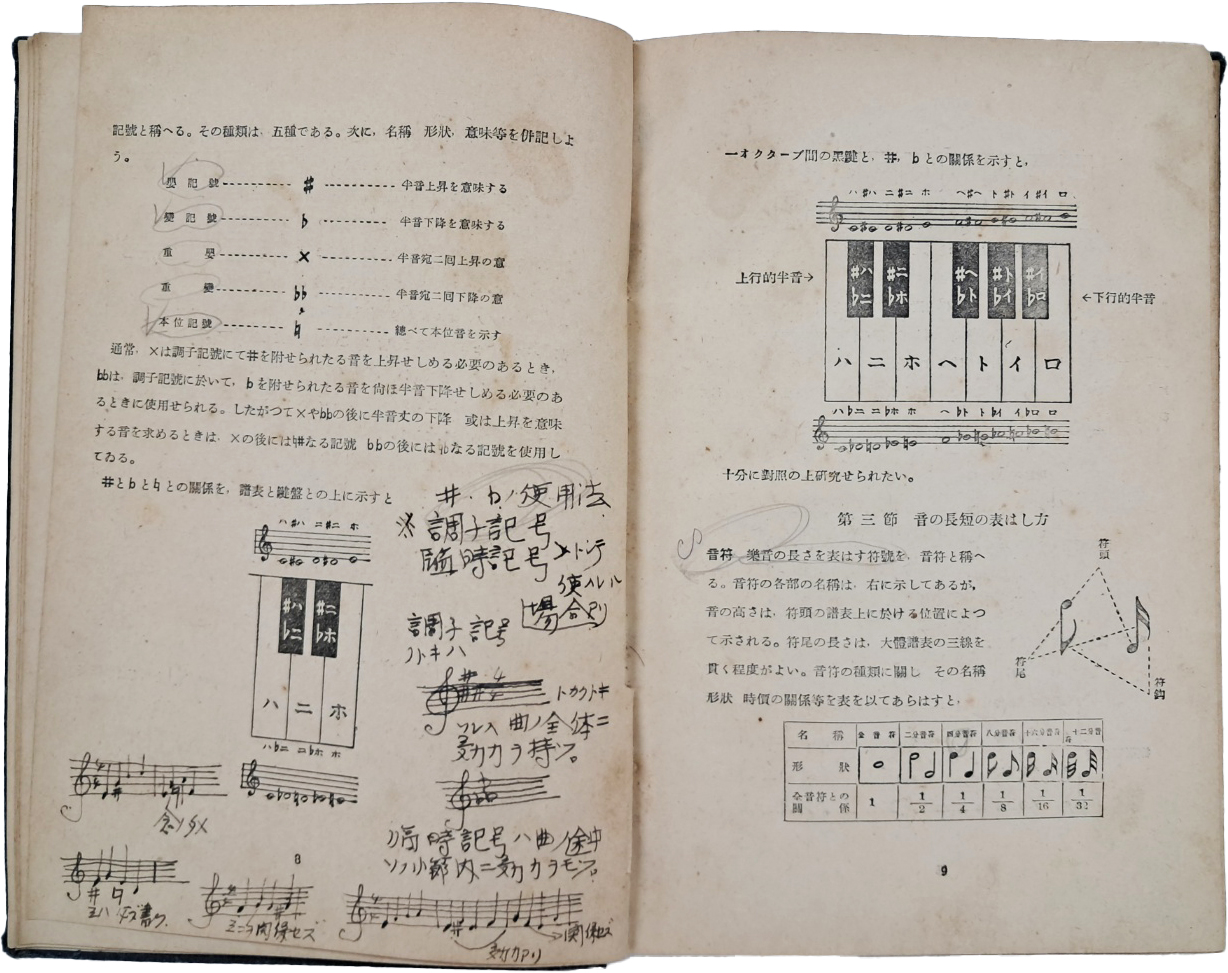 記號と稱へる。その種類は、五種である。次に、名稱　形狀、意味等を併記しよ
う。
變記號 ♯ 半音上昇を意味する
變記號 ♭ 半音下降を意味する
重變 × 半音宛二回上昇の意
重變 ♭♭ 半音宛二回下降の意
本位記號 ♮ 總べて本位音を示す
通常、×は調子記號にて♯を附せられたる音を上昇せしめる必要のあるとき、
♭♭は、調子記號に於いて、♭を附せられたる音を尙ほ半音下降せしめる必要のあ
るときに使用せられる。したがつて×や♭♭の後に半音丈の下降　或は上昇を意味
する音を求めるときは、×の後には♮♯なる記號　♭♭の後には♮♭なる記號を使用し
てゐる。
♯と♭と♮との關係を、譜表と鍵盤との上に示すと
ハ ♯ハ ニ ♯ニ ホ
♯ハ ♯ニ
♭ニ ♭ホ
ハ ニ ホ
ハ ♭ニ ニ ♭ホ ホ
♯.♭ノ使用法
※ 調子記号
臨時記号
使ハレル
場合アリ
調子記号
ノトキハ
トカクトキ
ソレハ曲ノ全体ニ
効力ヲ持ツ。
臨時記号ハ曲ノ途中
ソノ小節内ニ効力ヲモツ。
念ノタメ
♯ ♮
ミニハ関係セズ
関係セズ
効力アリ
8
一オクターブ間の黑鍵と、♯、♭との關係を示すと、
ハ ♯ハ ニ ♯ニ ホ ヘ ♯ヘ ト ♯ト イ ♯イ ロ
上行的半音→
♯ハ ♯ニ ♯ヘ ♯ト ♯イ
♭ニ ♭ホ ♭ト ♭イ ♭ロ
←下行的半音
ハ ニ ホ ヘ ト イ ロ
ハ ♭ニ ニ ♭ホ ホ ヘ ♭ト ト ♭イ イ ♭ロ ロ
十分に對照の上硏究せられたい。
第三節　音の長短の表はし方
音符　樂音の長さを表はす符號を、音符と稱へ
る。音符の各部の名稱は、右に示してあるが、
音の高さは、符頭の譜表上に於ける位置によつ
て示される。符尾の長さは、大體譜表の三線を
貫く程度がよい。音符の種類に關し　その名稱
形狀　時價の關係等を表を以てあらはすと、
符頭
符尾
符鈎
名稱 全音符 二分音符 四分音符 八分音符 十六分音符 十二分音符
形狀
全音符との關係 1 1/2 1/4 1/8 1/16 1/32
9